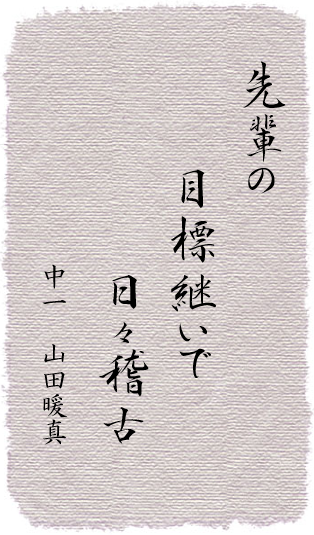 先輩の
目標継いで
日々稽古
中一 山田暖真